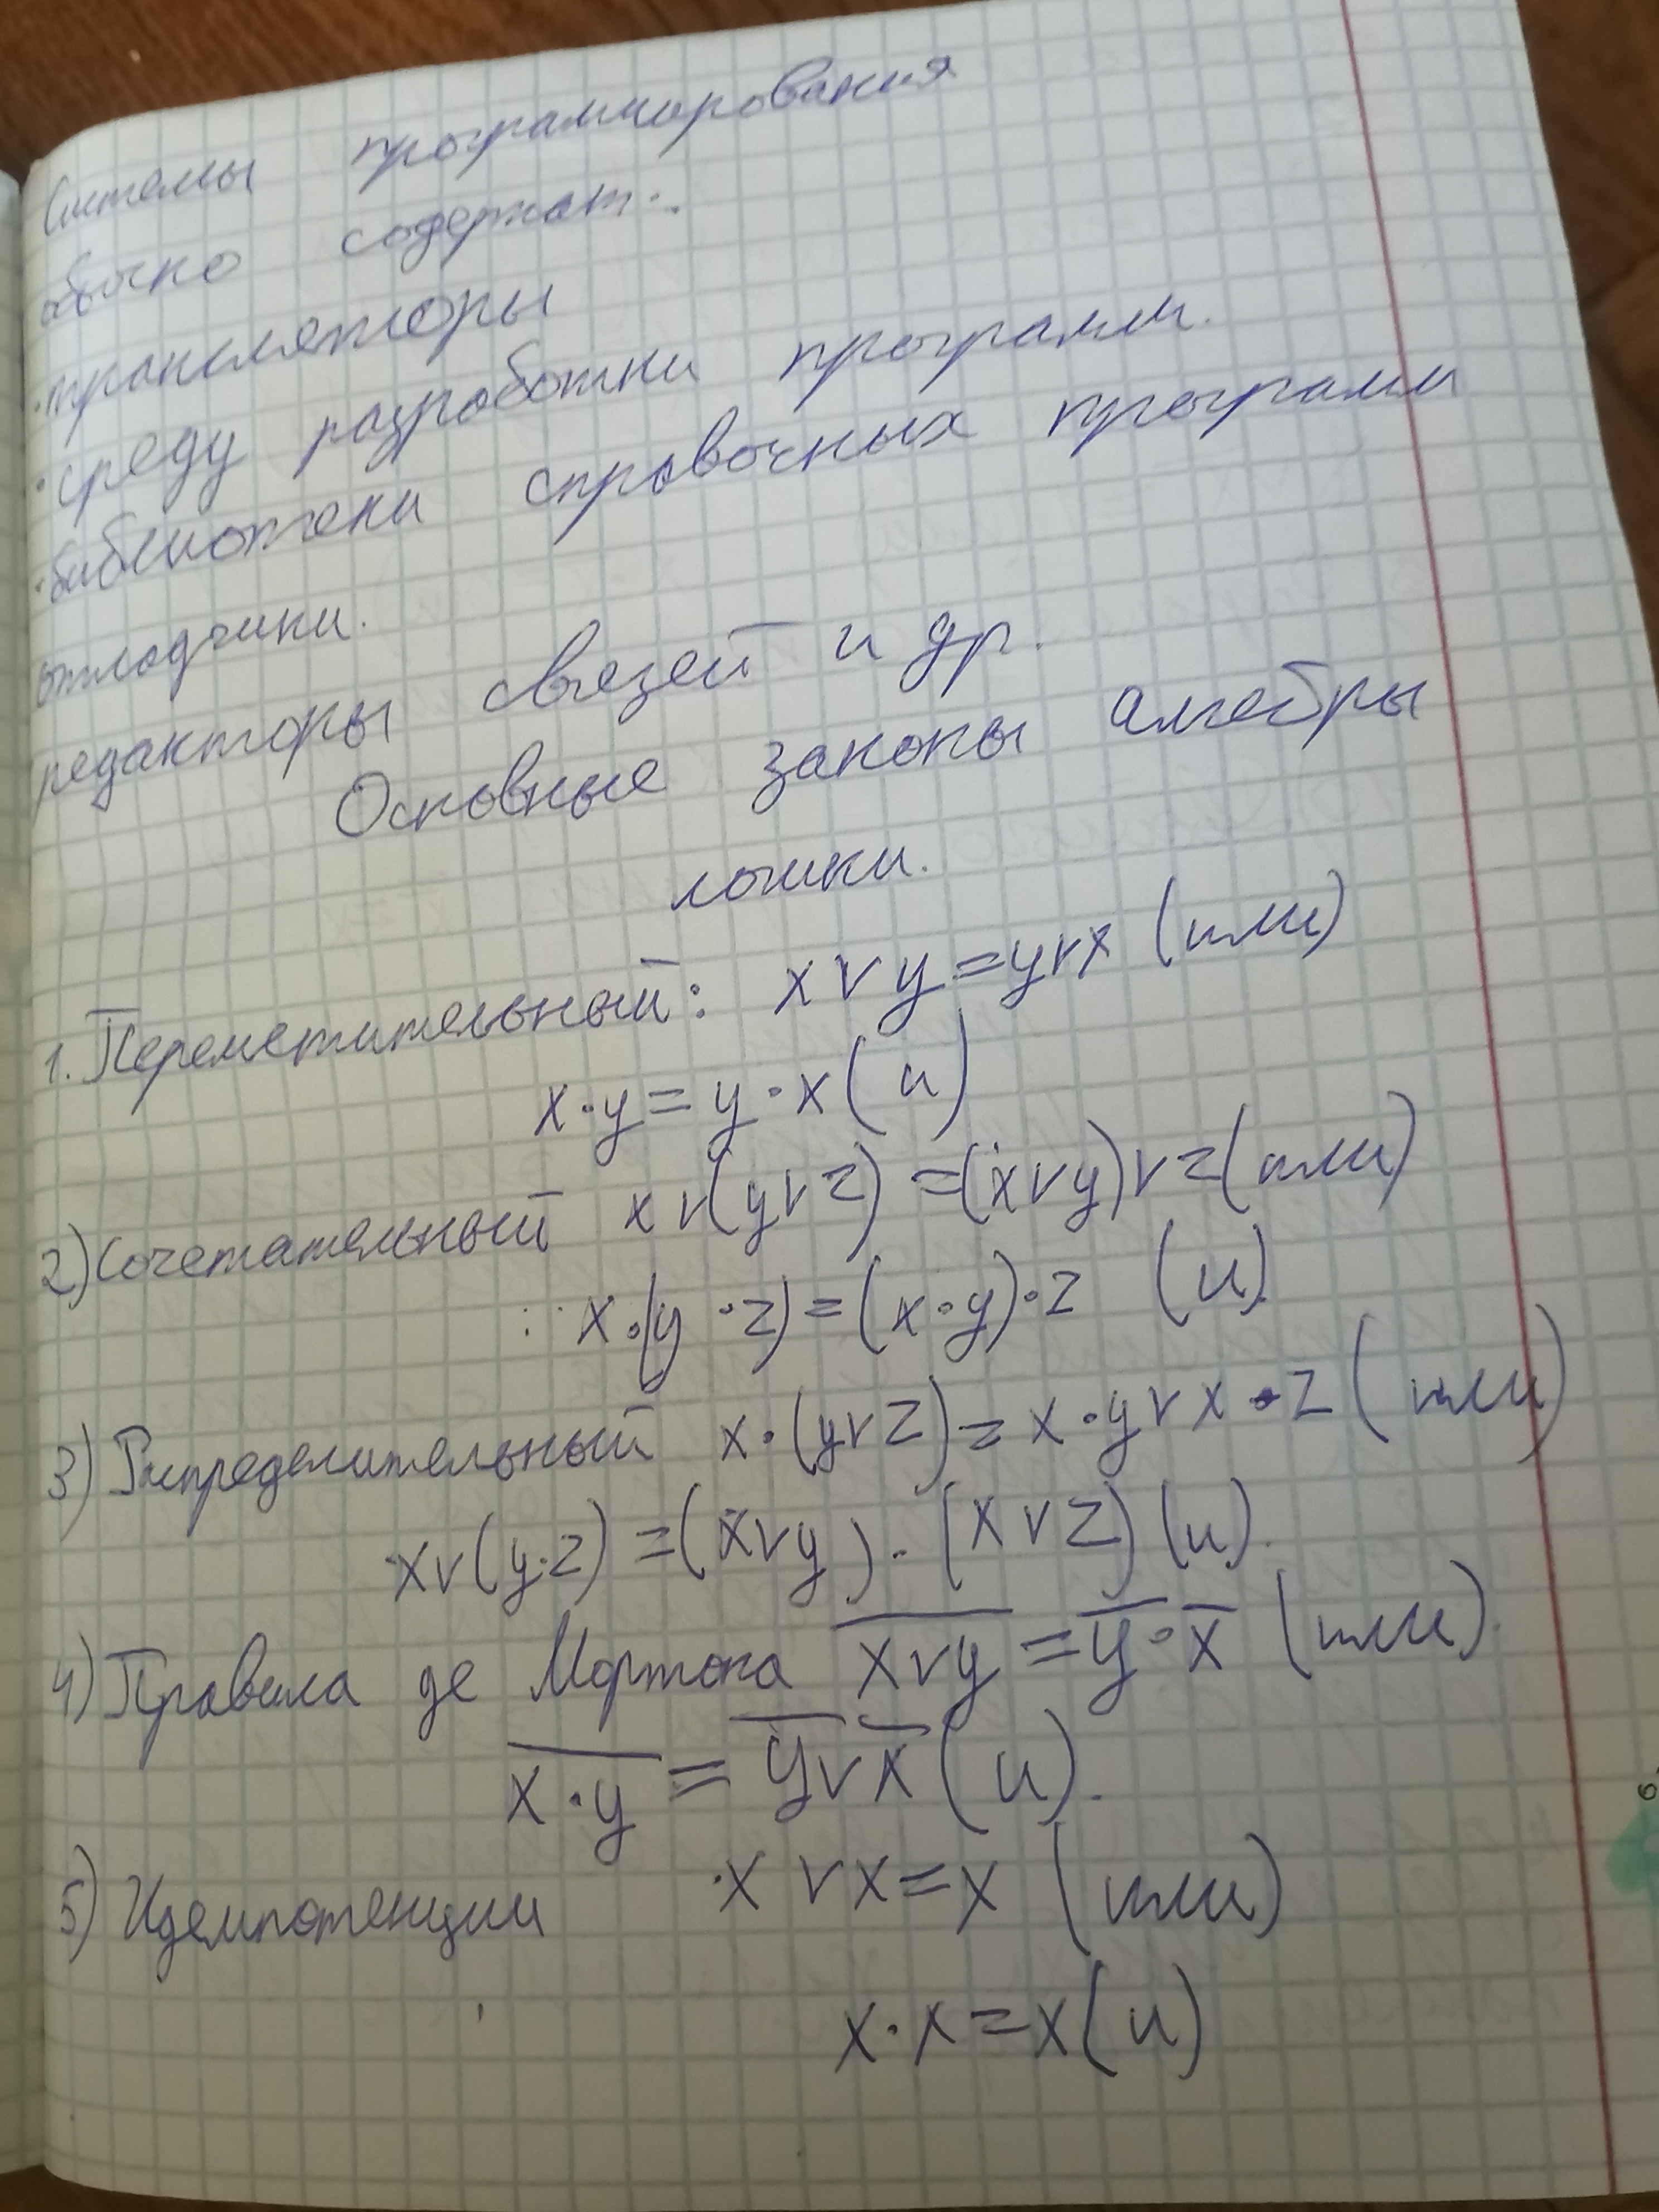 Системы программирования
обычно содержат:
·трансляторы
·среду разработки программ.
·библиотеки справочных программ
отладчики.
редакторы связей и др.
Основные законы алгебры
логики.
1. Переметительный: x v y = y v x (или)
x · y = y · x (и)
2) Сочетательный x v (y v z) = (x v y) v z (или)
x · (y · z) = (x · y) · z (и)
3) Распределительный x · (y v z) = x · y v x · z (или)
x v (y · z) = (x v y) · (x v z) (и).
4) Правила де Моргана x̅ ̅v̅ ̅y̅ = y̅ · x̅ (или).
x̅ ̅·̅ ̅y̅ = y̅ v x̅ (и).
5) Идемпотенции · x v x = x (или)
x · x = x (и)